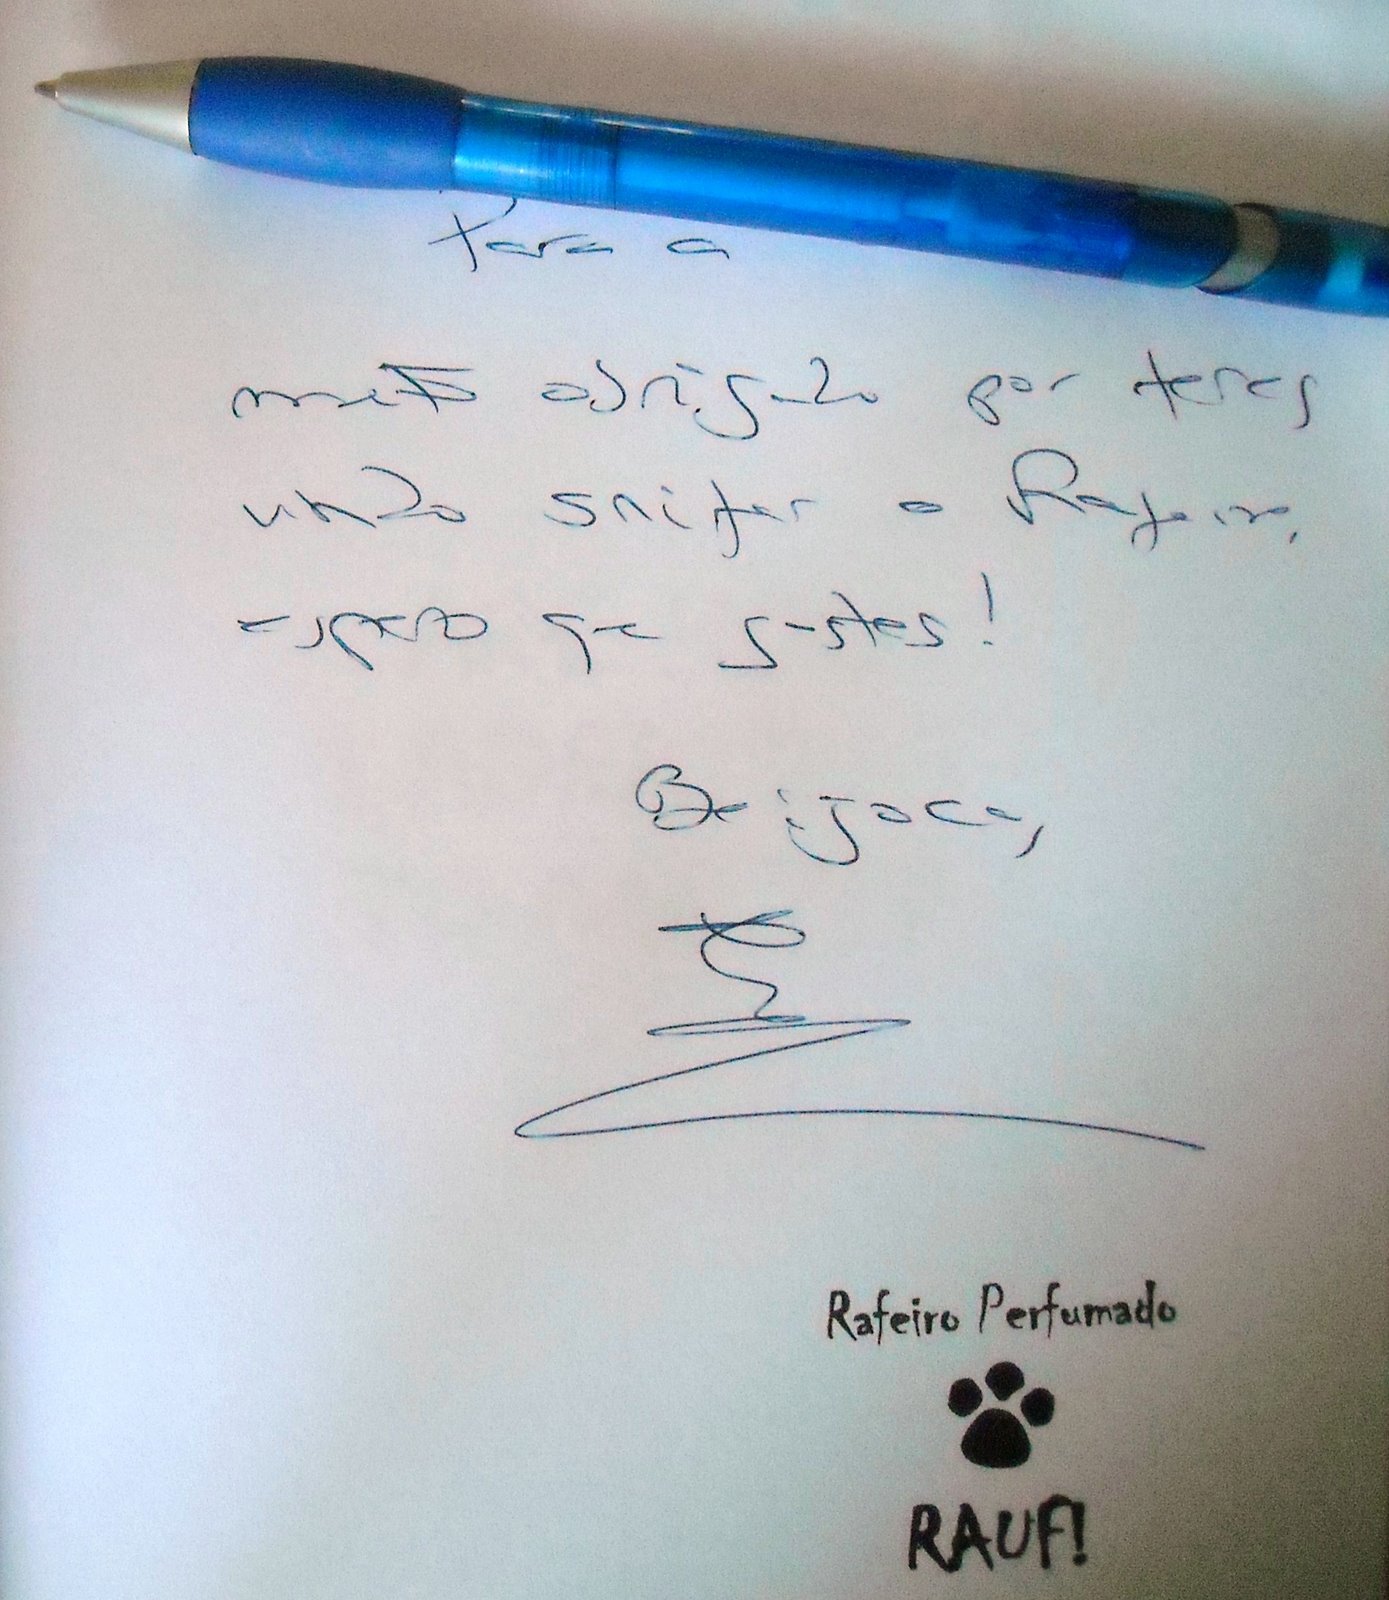 Para a
muito obrigado por teres
vindo snifar o Rafeiro,
espero que gostes!
Beijoca,
Rafeiro Perfumado
RAUF!